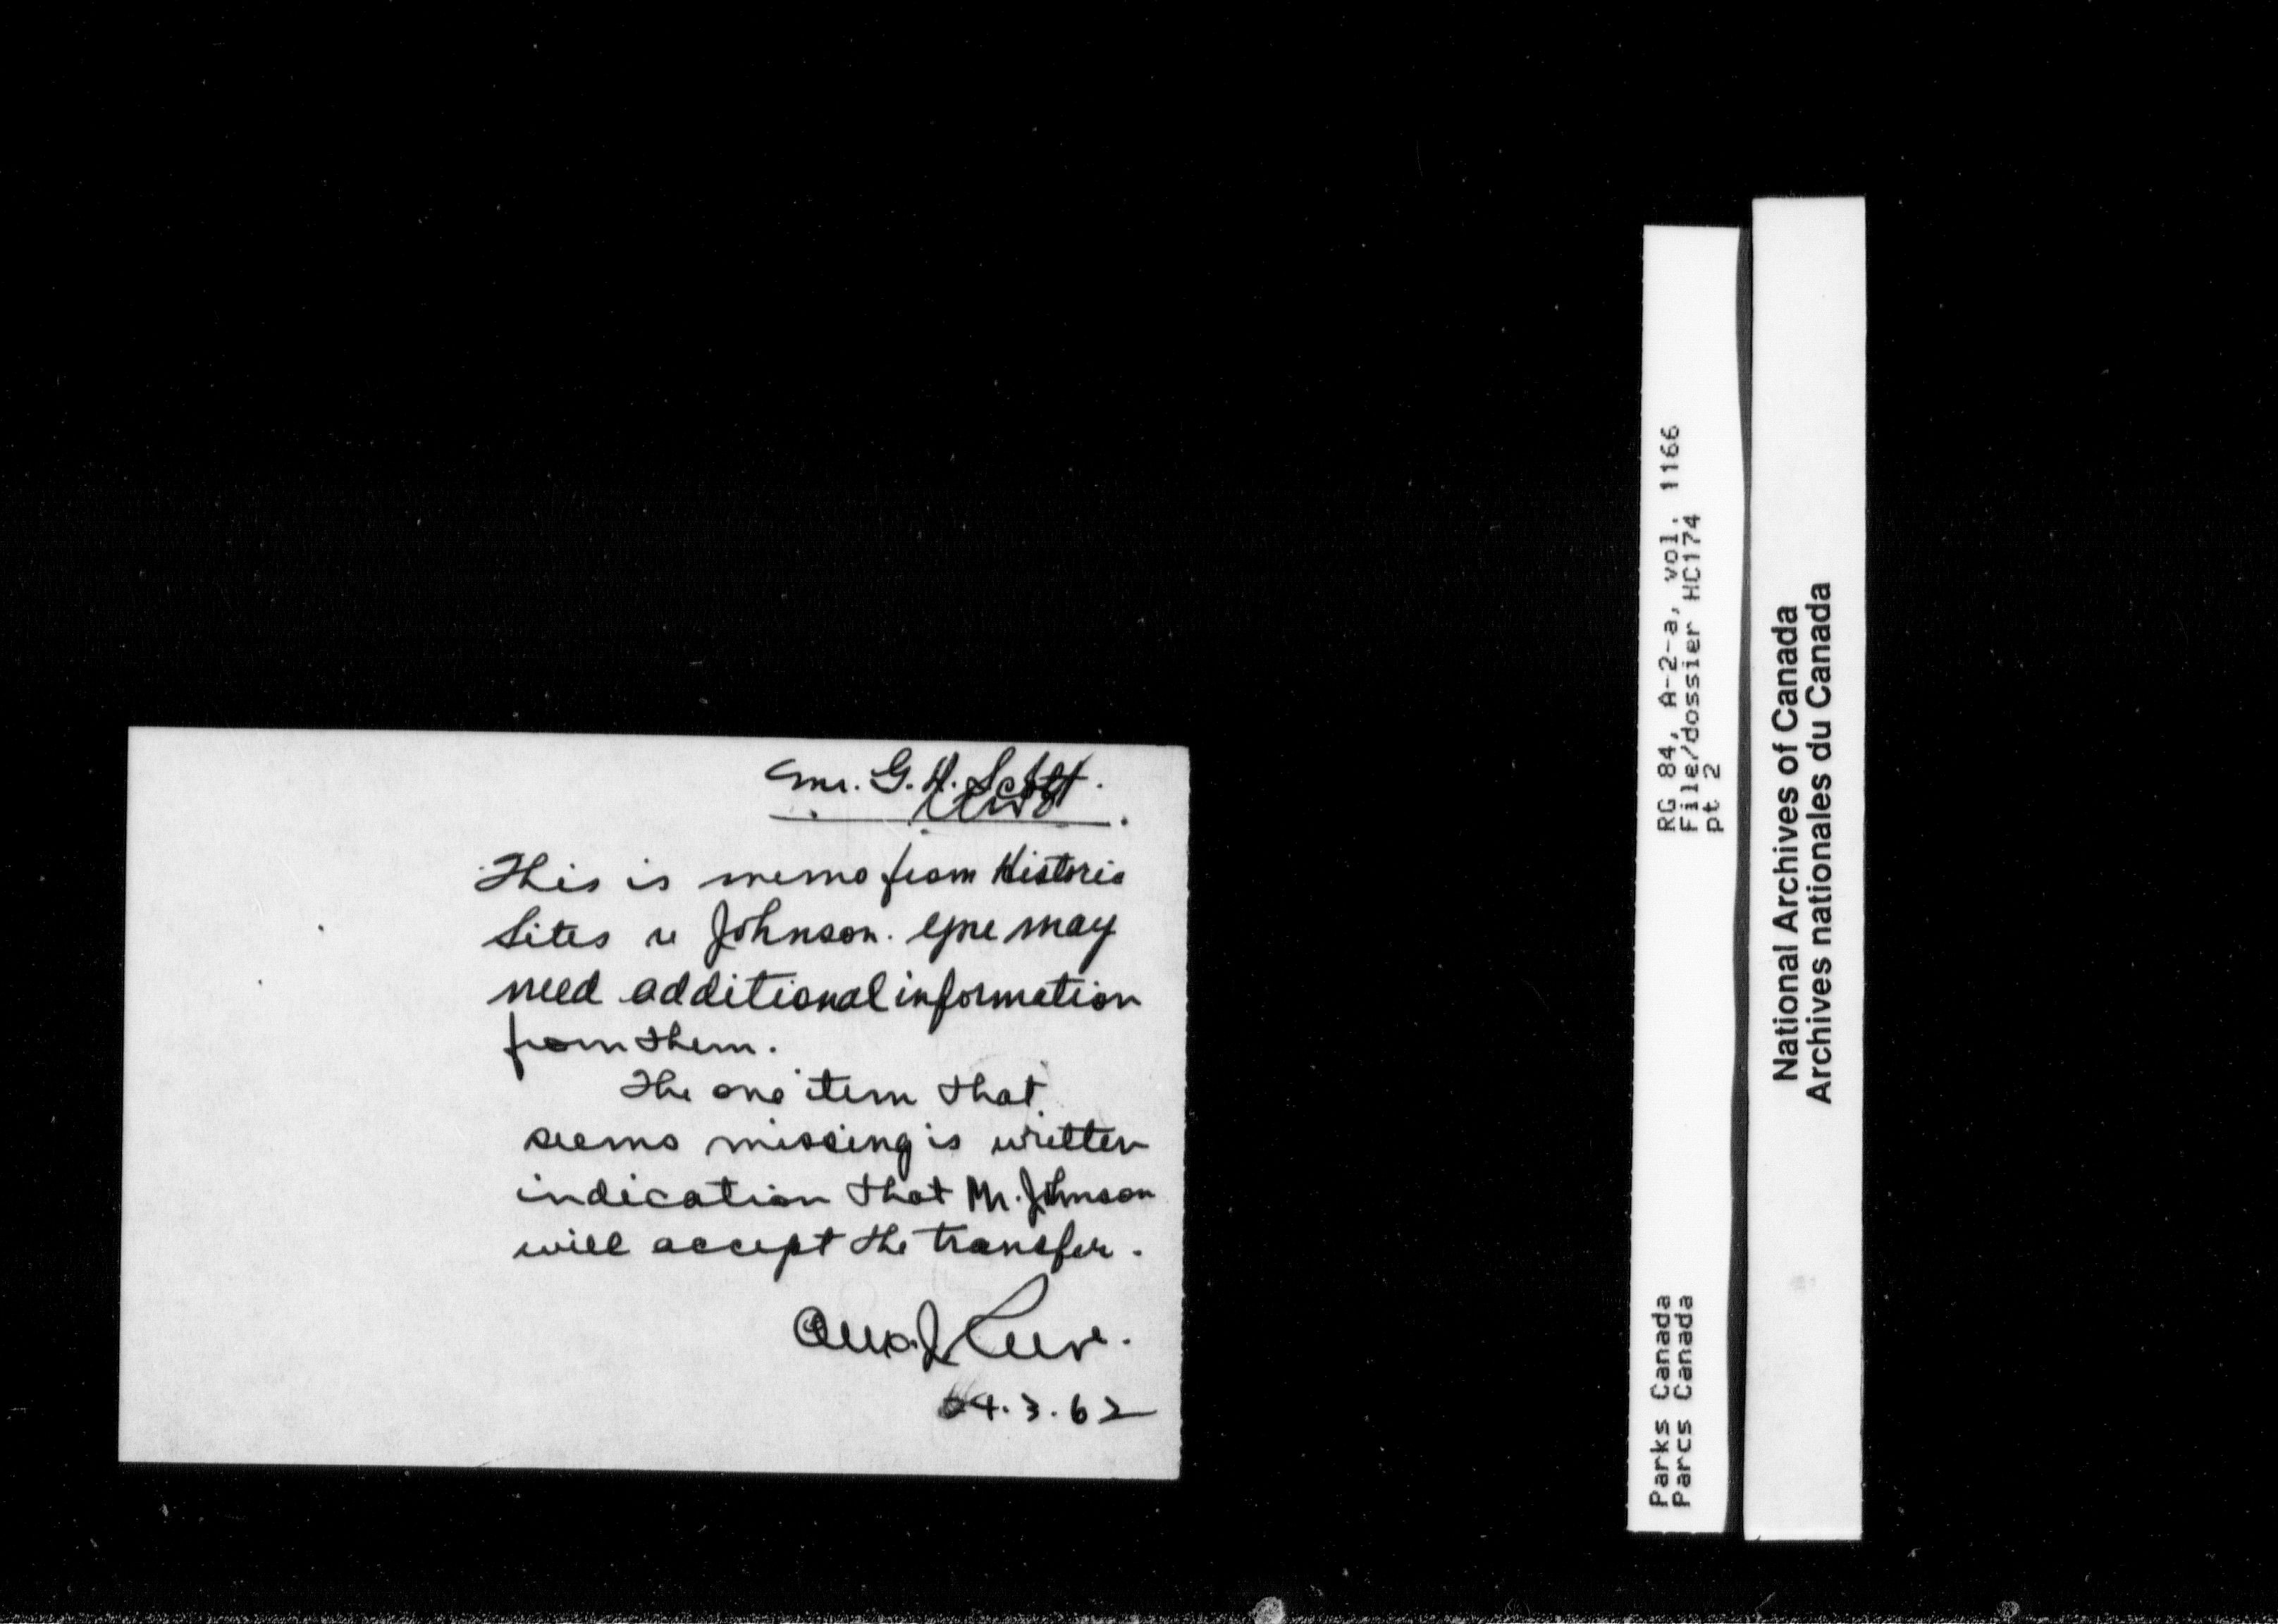 Mr. G. H. Scott.
This is memo from Historic
Sites re Johnson. You may
need additional information
from them.
The one item that
seems missing is written
indication that Mr. Johnson
will accept the transfer.
4.3.62
RG 84, A-2-a, vol. 1166
File/dossier HC174
pt 2
Parks Canada
Parcs Canada
National Archives of Canada
Archives nationales du Canada